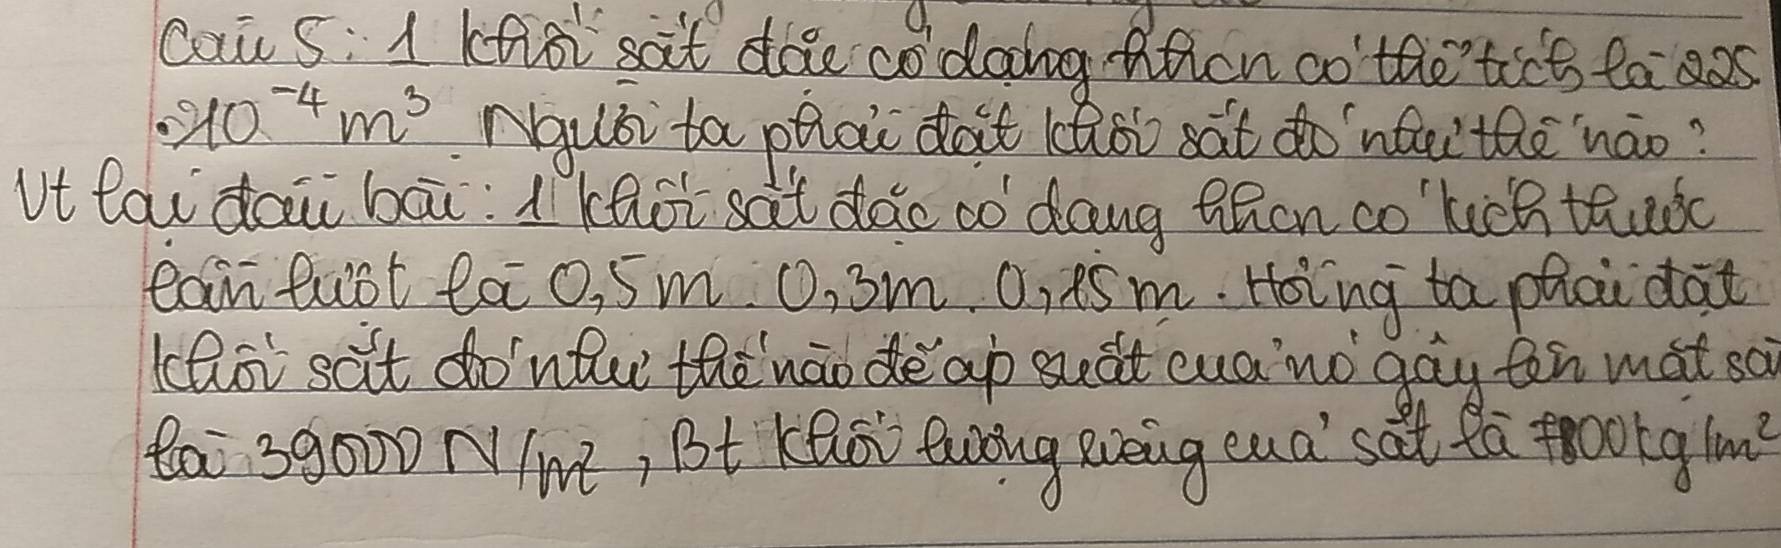 Câu 5: 1 khối sắt đặc có dạng hhcn có thể tích là 225
.10⁻⁴ m³. Người ta phải đặt khối sắt đó như thế nào?
Vt lại đầu bài: 1 khối sắt đặc có dạng hhcn có kích thước
lần lượt là 0,5m. 0,3m. 0,15m. Hỏi ng ta phải đặt
khối sắt đó như thế nào để áp suất của nó gây lên mặt sà
là 39000 N/m², Bt khối lượng riêng của sắt là 7800kg/m²